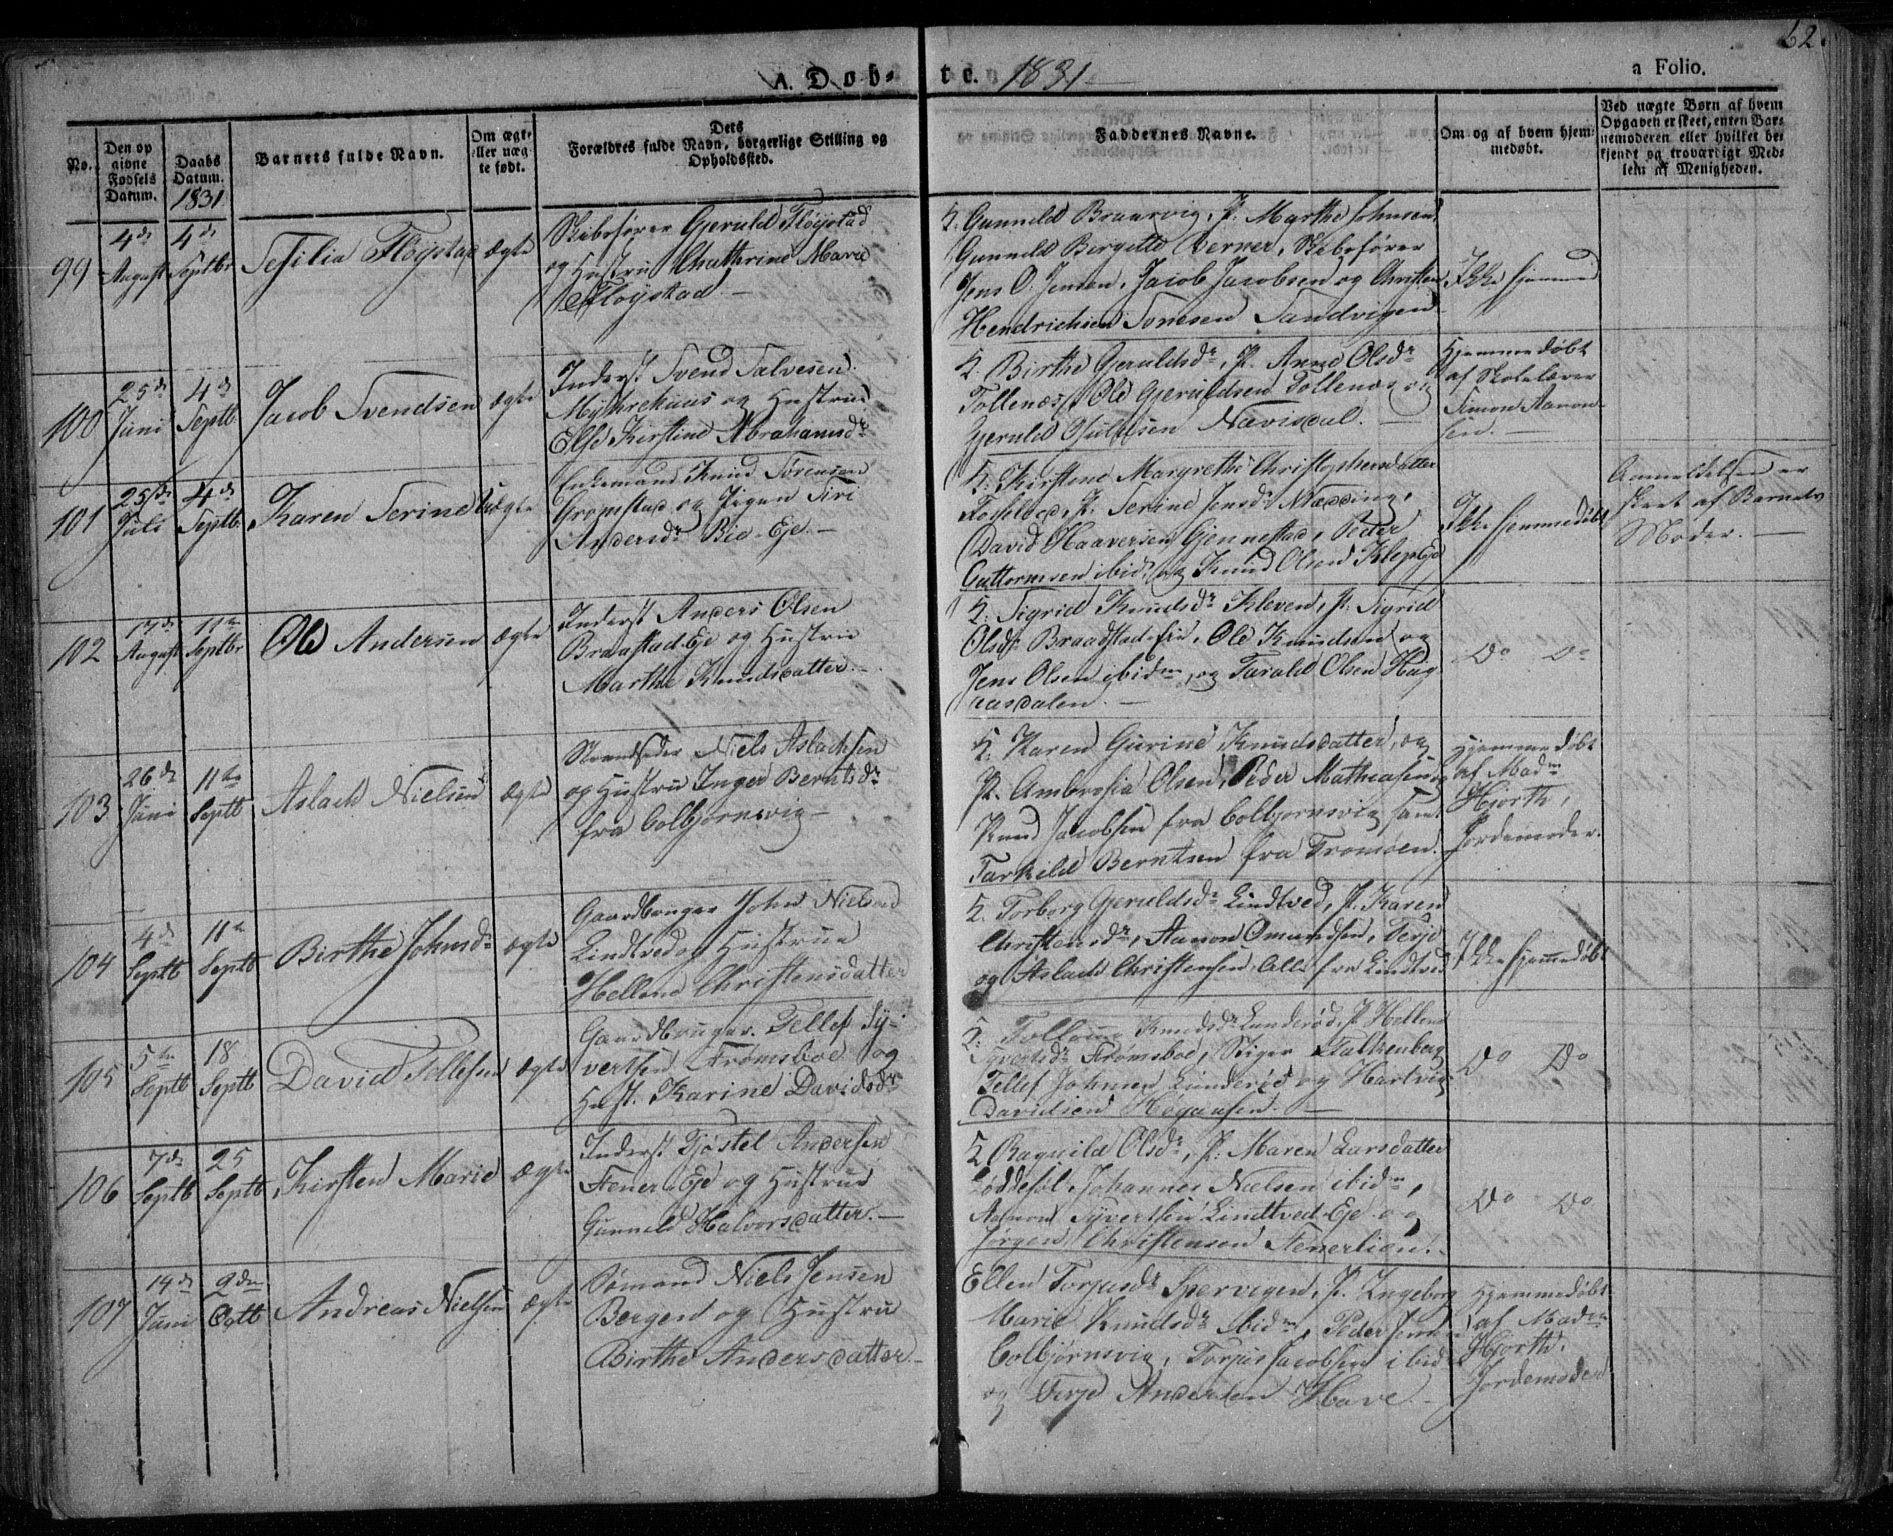 62.
A. Døbte. 1831
a Folio.
No.
Den opgivne Fødsels Datum.
Daabs Datum. 1831
Barnets fulde Navn.
Om ægte eller uægte født.
Dets Forældres fulde Navn, borgerlige Stilling og Opholdssted.
Faddernes Navne.
Om og af hvem hjemmedøbt.
Ved uægte Børn af hvem Opgaven er skeet, enten Barnemoderen eller hvilket bekjendt og troværdigt Medlem af Menigheden.
99
4de August
4de Septbr
Sesilia Fløystad
ægte
Skibsfører Gjeruld Fløystad
og Hustru Chathrine Marie
Fløystad. –
K. Gunnild Braarvig, P. Marthe Johnsen,
Gunnild Bergette Werner, Skibsfører
Jens O. Jensen, Jacob Jacobsen og Christen
Hendrichsen Tonesen Sandvigen
Ikke hjemmed
100
25de Juni
4de Septb
Jacob Svendsen
ægte
Inderst Svend Salvesen
Myhrehaus og Hustrue
Else Kirstine Abrahamsdr
K. Birthe Gjeruldsdr, P. Anne Olsdr
Sollenæs, Ole Gjeruldsen Sollenæs og
Gjeruld Nævisdal. –
Hjemmedøbt
af Skolelærer
Simon Aaron-
sen. –
101
25de Juli
4de Septbr
Karen Serine
uægte
Enkemand Knud Sørensen
Gromstad og Pigen Siri
Andersdr Bie-Eje. –
K. Kirstene Margrethe Christophersdatter
P. Serine Jensdr Nædding,
David Haaversen Gjennestad, Peder
Guttormsen ibid. og Knud Olsen KlepEje
Ikke hjemmedøbt
Anmeldelsen er
skeet af Barnets
Moder. –
102
17de August
11te Septbr
Ole Andersen
ægte
Inderst Anders Olsen
Braastad-Eje og Hustrue
Marthe Knudsdatter. –
K. Sigrid Knudsdr Kleven, P. Sigrid
Olsdr Braadstad-Eie, Ole Knudsen og
Jens Olsen ibidm, og Tarald Olsen Hög-
aasdalen. –
Do Do
103
26de Juni
11te Septb
Aslach Nielsen
ægte
Strandsidder Niels Aslachsen
og Hustru Inger Berntsdr
fra Colbjørnsvig –
K. Karen Gurine Knudsdatter, og
P. Ambrosia Olsen, Peder Mathiasen og
Knud Jacobsen fra Colbjornsvig, samt
Tarkild Berntsen fra Tromöen.
Hjemmedøbt
af Madm
Hjorth,
Jordemoder.
104
4de Septb
11te Septb
Birthe Johnsdr
ægte
Gaardbruger John Nielsen
Lindtved og Hustrue
Hellene Christensdatter
K. Torborg Gjeruldsdr Lindtved, P. Karen
Christensdr, Aanon Omundsen, Terje
og Aslach Christensen, Alle fra Lindtved
Ikke hjemmedøbt
105
5te Septb
18 Septb
David Tellefsen
ægte
Gaardbruger Tellef Sy-
vertsen Frømsboe og
Hust. Karine Davidsdr
K. Knudsdr Lunderød, P. Hellene
Syvertsdr Frømsboe, Stiger Falkenberg
Tellef Johnsen Lunderød og Hartvig
Davidsen Høgaasen. –
Do Do
106
7de Septb
25 Septb
Kirsten Marie
ægte
Inderst Tjöstel Andersen
Stener-Eje og Hustrue
Gunnild Halvorsdatter. –
K. Ragnild Olsdr, P. Maren Larsdatter
Løddesöl, Johannes Nielsen ibidm,
Aanon Syvertsen Lindtved-Eje og
Jörgen Christensen Stenerlien. –
Do Do
107
14de Juni
9den Octb
Andreas Nielsen
ægte
Sømand Niels Jensen
Bergene og Hustru
Birthe Andersdatter –
Ellen Torjusdr Spervigen, P. Ingeborg
Marie Knudsdr Ibidm, Peder Jensen
Colbjørnsvig, Torjus Jacobsen ibid
og Terje Andersen Have. –
Hjemmedøbt
af Madm
Hjorth,
Jordemoder